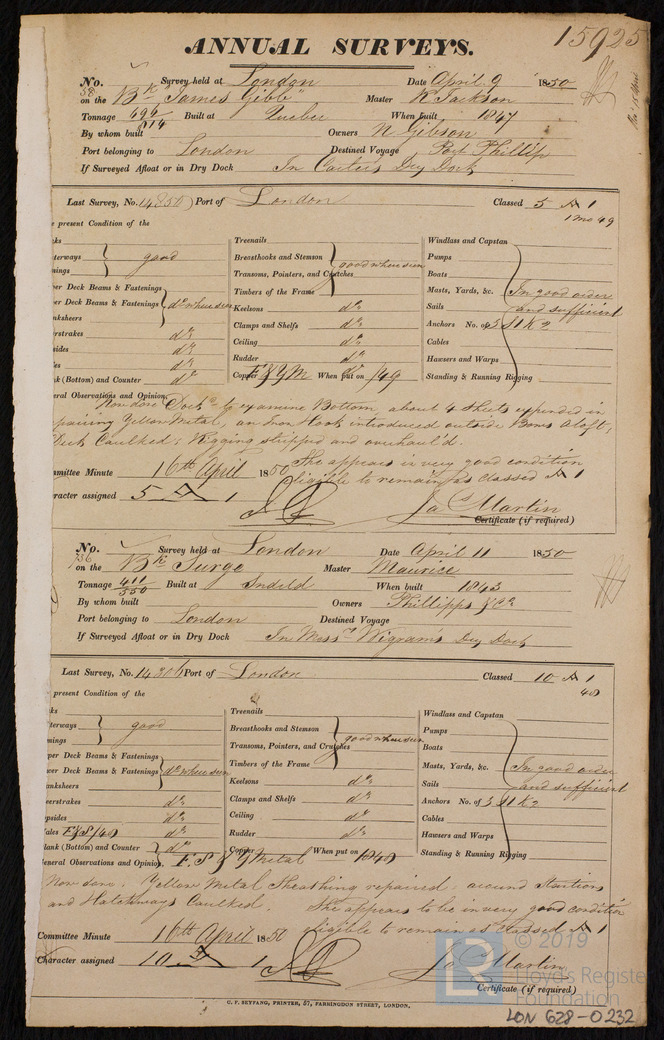 15925
ANNUAL SURVEYS.
No. 58 Survey held at London Date April 9 1850
on the Bk "James Gibb" Master R Jackson
Tonnage 696/814 Built at Quebec When built 1847
By whom built Owners N Gibson
Port belonging to London Destined Voyage Port Phillip
If Surveyed Afloat or in Dry Dock In Carters Dry Dock
Last Survey, No. 14850 Port of London Classed 5 A 1
1 mo 49
present Condition of the
Treenails
Windlass and Capstan
terways good
Breasthooks and Stemson good where seen
Pumps
Transoms, Pointers, and Crutches
Boats
per Deck Beams & Fastenings
Timbers of the Frame
Masts, Yards, &c. In good order
er Deck Beams & Fastenings do where seen
Keelsons do
Sails and sufficient
anksheers
Clamps and Shelfs do
Anchors No. of 3 B 1 K 2
erstrakes do
Ceiling do
Cables
sides do
Rudder do
Hawsers and Warps
les do
Copper F & Y M When put on /49
Standing & Running Rigging
nk (Bottom) and Counter do
eral Observations and Opinion,
Now done Dockd to examine Bottom, about 4 Sheets expended in
pairing Yellow Metal, an Iron Hook introduced outside Bows Aloft;
Deck Caulked; Rigging stripped and overhaul'd.
She appears in very good condition
mmittee Minute 16th April 1850 eligible to remain as classed A 1
haracter assigned 5 A 1 Ja Martin
Certificate (if required)
No. 736 Survey held at London Date April 11 1850
on the Bk Surge Master Maurice
Tonnage 411/350 Built at Sndrld When built 1843
By whom built Owners Phillipps & Co
Port belonging to London Destined Voyage
If Surveyed Afloat or in Dry Dock In Messrs Wigrams Dry Dock
Last Survey, No. 14306 Port of London Classed 10 A 1
48
present Condition of the
Treenails
Windlass and Capstan
terways good
Breasthooks and Stemson good where seen
Pumps
Transoms, Pointers, and Crutches
Boats
per Deck Beams & Fastenings
Timbers of the Frame
Masts, Yards, &c. In good order
wer Deck Beams & Fastenings do where seen
Keelsons do
Sails and sufficient
anksheers
Clamps and Shelfs do
Anchors No. of 3 B 1 K 2
erstrakes do
Ceiling do
Cables
psides do
Rudder do
Hawsers and Warps
ales do
Copper F. S & Y Metal When put on 1848
Standing & Running Rigging
lank (Bottom) and Counter do
eneral Observations and Opinion,
Now done. Yellow Metal Sheathing repaired around Stantions
and Hatchways Caulked. She appears to be in very good condition
Committee Minute 16th April 1850 eligible to remain as classed A 1
Character assigned 10 A 1 Ja Martin
Certificate (if required)
C. F. SEYFANG, PRINTER, 57, FARRINGDON STREET, LONDON.
© 2019
LR
Lloyd's Register
Foundation
LON 628-0232